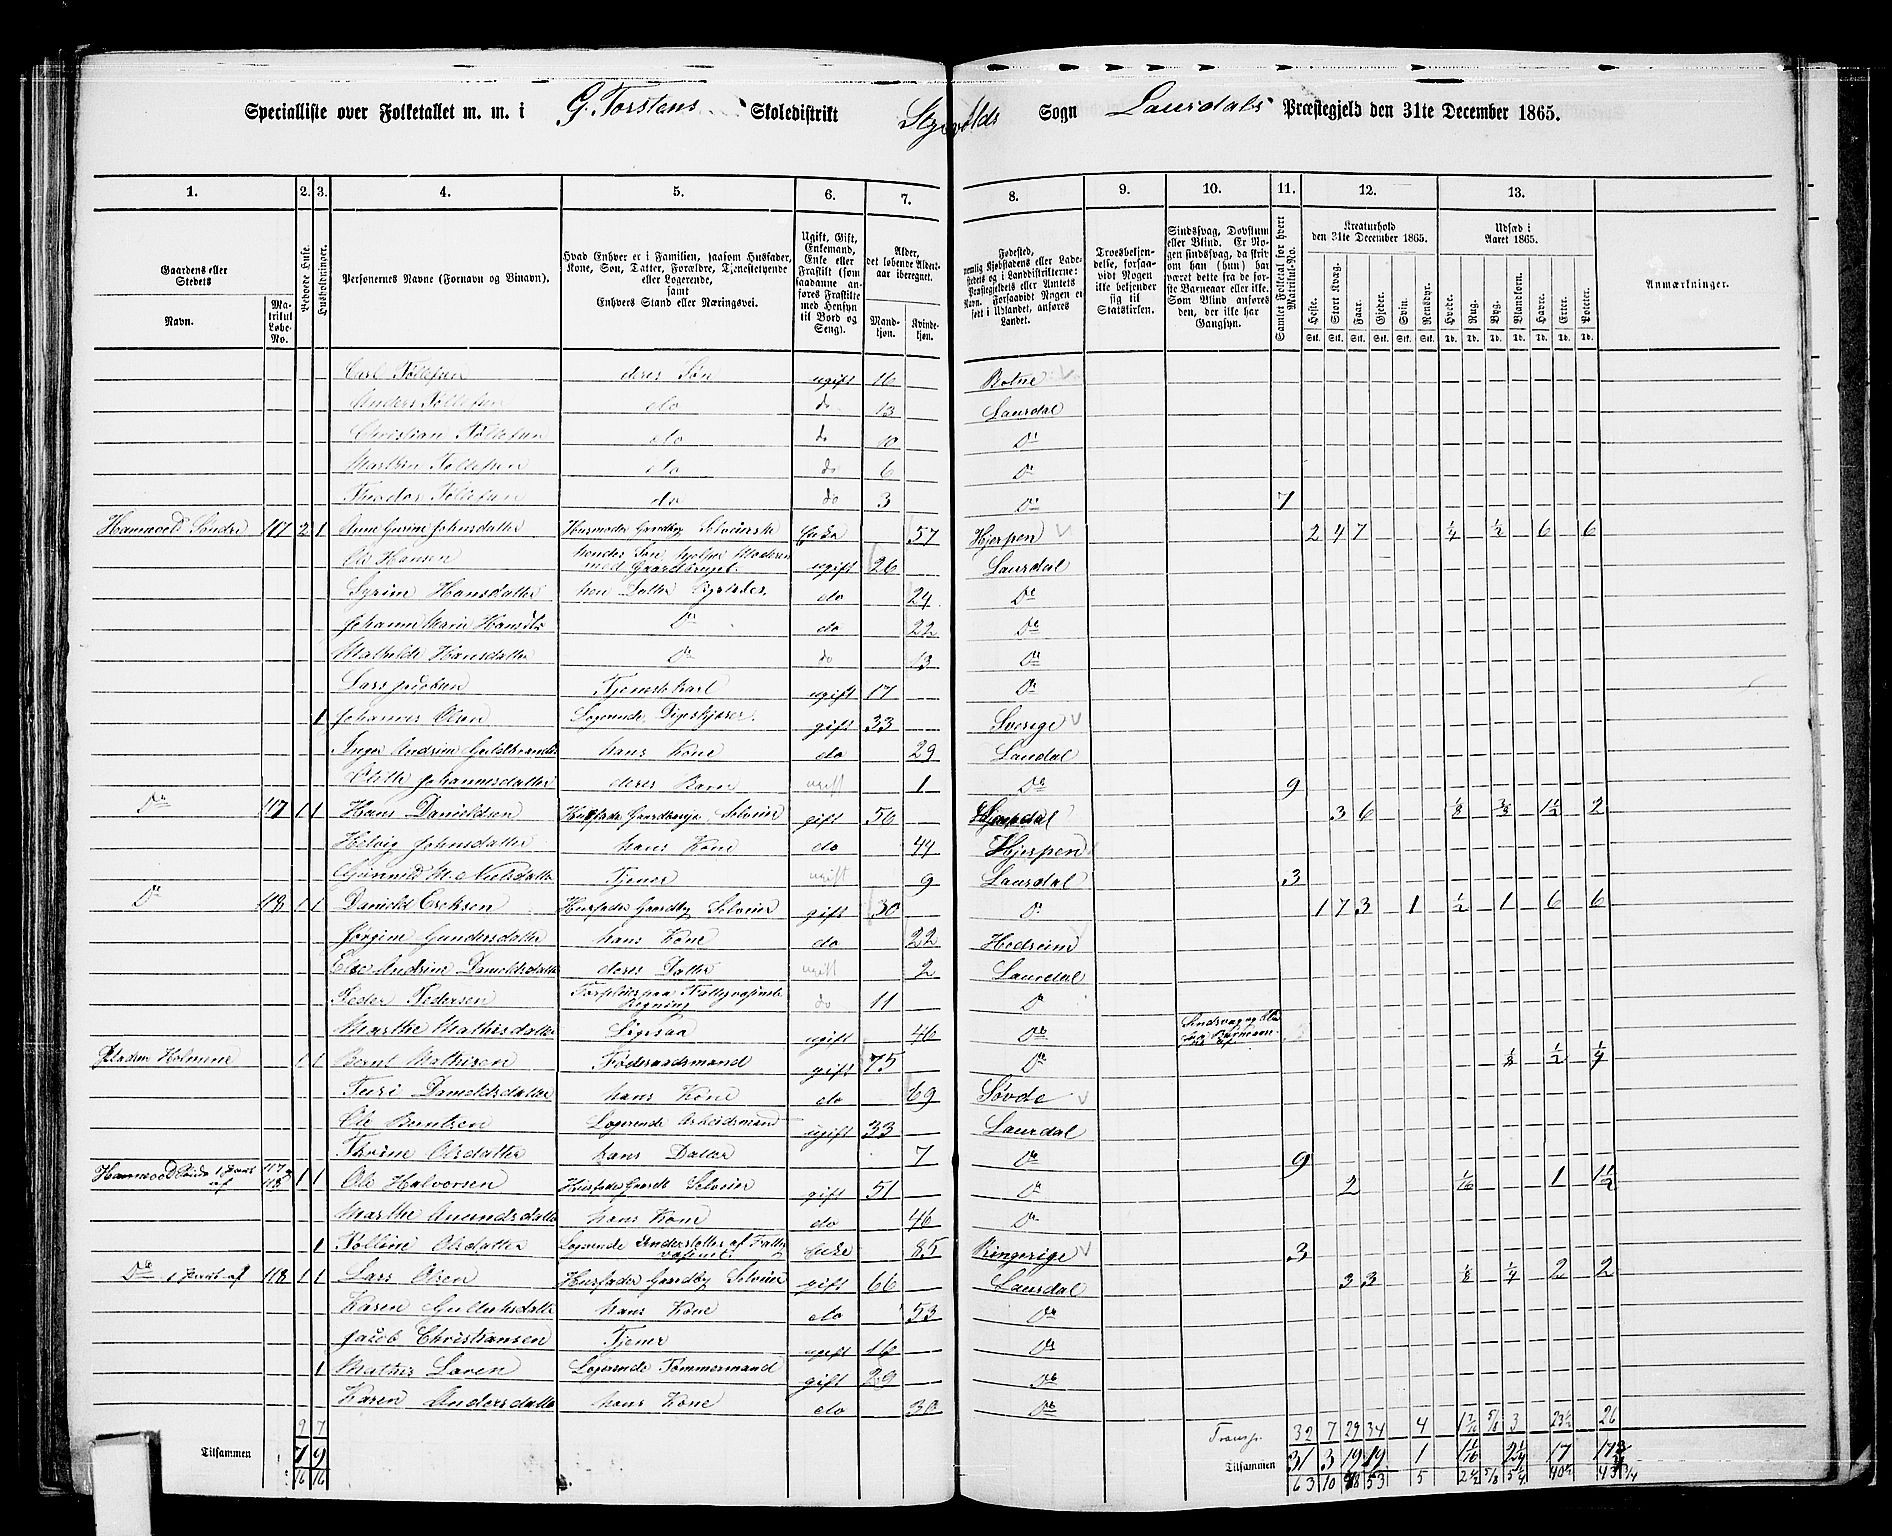 Specialliste over Folketallet m. m. i G. Torstens Skoledistrikt Sogn Laurdals Præstegjeld den 31te December 1865.
1. 2. 3. 4. 5. 6. 7. 8. 9. 10. 11. 12. 13.
Gaardens eller Stedets
Navn.
Matrikul Løbe-No.
Beboede Huse.
Husholdninger.
Personernes Navne (Fornavn og Binavn).
Hvad Enhver er i Familien, saasom Husfader, Kone, Søn, Datter, Forældre, Tjenestetyende eller Logerende, samt Enhvers Stand eller Næringsvei.
Ugift, Gift, Enkemand, Enke eller Fraskilt (som saadanne anføres Fraskilte med Hensyn til Bord og Seng).
Alder, det løbende Alders-aar iberegnet.
Mandkjøn. Kvindekjøn.
Fødested, nemlig Kjøbstadens eller Ladestedets og i Landdistrikterne: Præstegjeldets eller Amtets Navn. Forsaavidt Nogen er født i Udlandet, anføres Landet.
Troesbekjendelse, forsaavidt Nogen ikke bekjender sig til Statskirken.
Sindssvag, Døvstum eller Blind. Er Nogen sindssvag, da skriv om han (hun) har været dette fra sidste Barneaar eller ikke. Som Blind anføres den, der ikke har Gangsyn.
Samlet Folketal for hvert Matrikul-No.
Kreaturhold den 31te December 1865.
Heste. Stort Kvæg. Faar. Gjeder. Svin. Rensdyr.
Udsæd i Aaret 1865.
Hvede. Rug. Byg. Blandkorn. Havre. Erter. Poteter.
Anmærkninger.
Carl Tollefsen deres Søn ugift 16 Botne
Anders Tollefsen do do 13 Laurdal
Christian Tollefsen do do 10 Do
Martin Tollefsen do do 6 Do
Theodor Tollefsen do do 3 Do 7
Hannevold Søndre 117 2 1 Anne Gurine Johnsdatter Husmoder Gaardby Selveierske Enke 57 Hjerpen 2 4 7 1/4 1/2 6 6
Ole Hansen hendes Søn hjelper Moderen med Gaardbruget ugift 26 Laurdal
Hansdatter do 24 Do
Johanne Marie Do do 22 Do
Mathilde Hansdatter Do do 13 Do
Lars Jacobsen Tjenstekarl ugift 17 Do
1 Johannes Olsen Logerende gift 33 Sverige
Inger Andrine Guldbrandsd hans Kone do 29 Laurdal
Johannesdatter deres Barn ugift 1 Do 9
Do 117 1 1 Hans Danieldsen Husfader Gaardbruger Selveier gift 50 3 6 1/8 3/8 1 1/2 2
Helvig Johnsdatter hans Kone do 44 Hjerpen
Gunnild M. Nielsdatter Tjener ugift 9 Laurdal 3
Do 118 1 1 Danield Ericksen Husfader Gaardby Selveier gift 30 Do 1 7 3 1 1/2 1 6 6
Jørgine Gundersdatter hans Kone do 22 Hedrum
Else Andrine Danieldsdatter deres Datter ugift 2 Laurdal
Peder Pedersen Forpleies paa Fattigvæsenets Regning do 11 Do
Marthe Mathisdatter Ligesaa ugift 46 Do
Pladsen Holmene 1 1 Bernt Mathisen Føderaadsmand gift 75 Do 1/8 1/2 1/4
Turi Danieldsdatter hans Kone do 69 Søvde
Ole Berntsen Logerende Arbeidsmand ugift 33 Laurdal
Olsdatter hans Datter 7 Do 9
117 og 118 1 1 Ole Halvorsen Husfader Gaardb Selveier gift 51 Do 2 1/16 1 1 1/2
Marthe Amundsdatter hans Kone do 46 Do
1 Olsdatter Logerende Understøttes af Fattigvæsenet Enke 85 Ringerige 3
Do 118 1 1 Lars Olsen Husfader Gaardby Selveier gift 66 Laurdal 3 3 1/8 1/4 2 2
Karen Gulliksdatter hans Kone do 53 Do
Jacob Christiansen Tjener ugift 16 Do
1 Mathis Larsen Logerende Tømmermand gift 29 Do
Karen Andersdatter hans Kone do 30 Do
9 7 Transp. 32 7 29 34 4 5/8 3 23 1/2 26
Tilsammen 7 9 Tilsammen 31 3 19 19 1 1 1/16 2 1/4 17
16 16 63 10 48 53 5 2 1/2 5/8 5 1/4 40 1/2 43 3/4